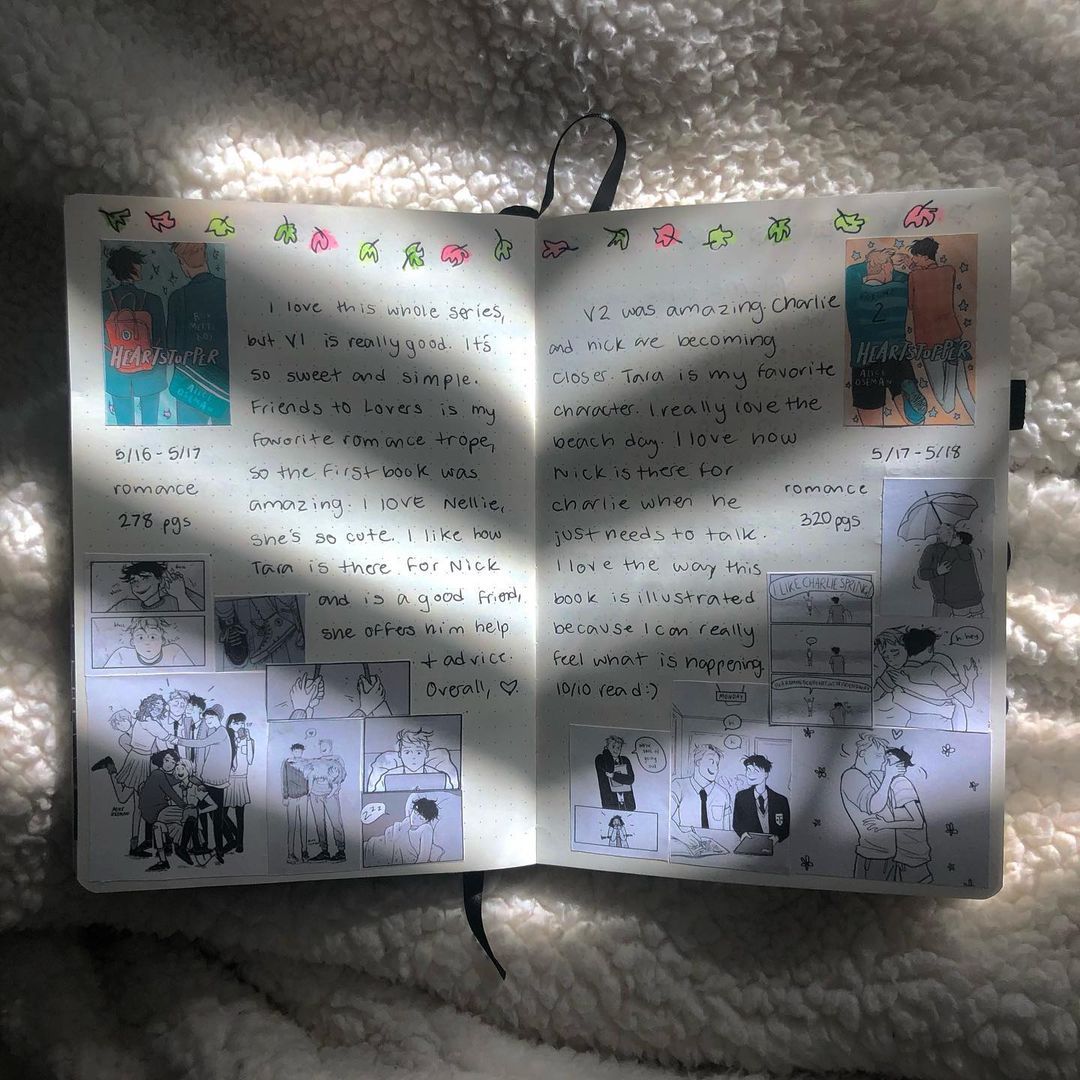 BOY
MEETS
BOY
HEARTSTOPPER
ALICE
OSEMAN
5/16 - 5/17
romance
278 pgs
I love this whole series,
but V1 is really good. It's
so sweet and simple.
Friends to Lovers is my
favorite romance trope,
so the first book was
amazing. I love Nellie,
she's so cute. I like how
Tara is there for Nick
and is a good friend,
she offers him help
+ advice.
Overall, ♡.
ALICE
OSEMAN
zzz
V2 was amazing. Charlie
and nick are becoming
closer. Tara is my favorite
character. I really love the
beach day. I love how
Nick is there for
charlie when he
just needs to talk.
I love the way this
book is illustrated
because I can really
feel what is happening.
10/10 read :)
2
HEARTSTOPPER
ALICE
OSEMAN
5/17 - 5/18
romance
320 pgs
I LIKE CHARLIE SPRING!
h-hey
MONDAY
hi
hi